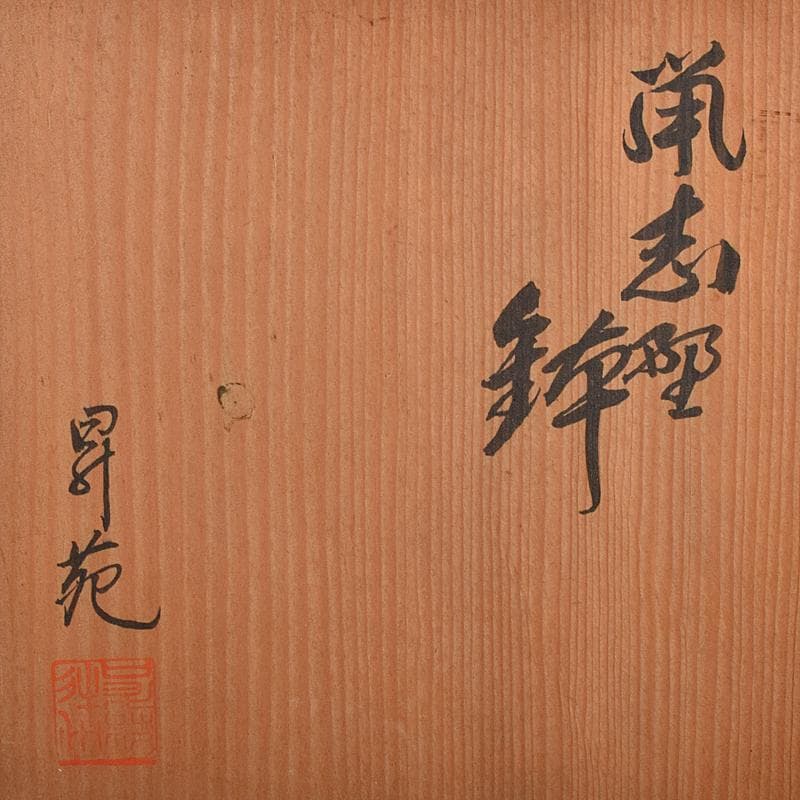 鼡志野
鉢
昇苑